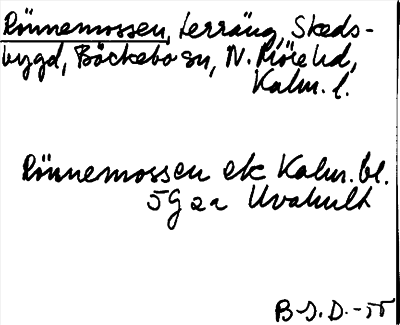 Rönnemossen, terräng, Skeds-
bygd, Bäckebo sn, N. Möre hd,
Kalm. l.
Rönnemossen ek Kalm. bl.
5G 2a Uvahult
B-J.D.-55